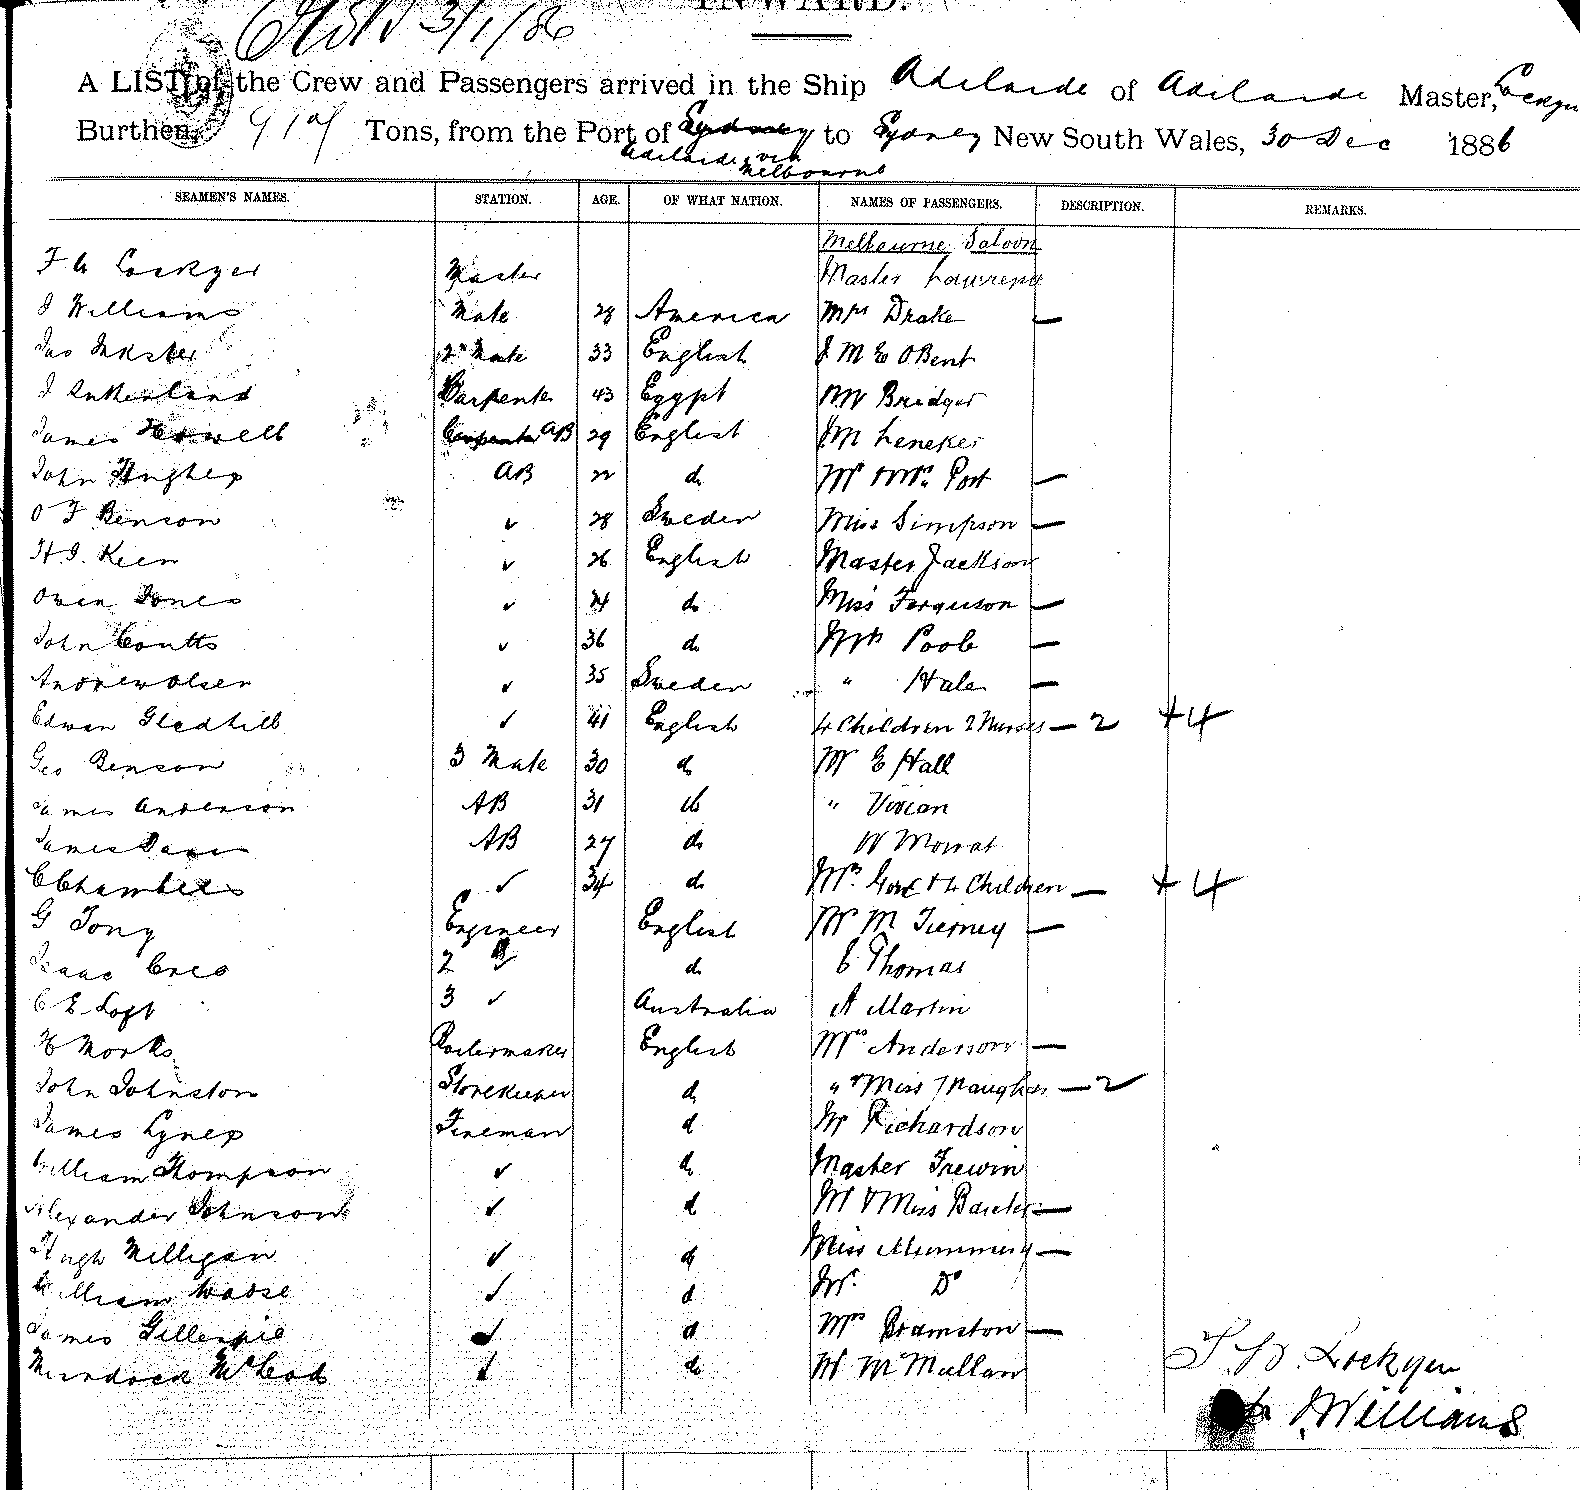 INWARD.
3/1/86
A LIST of the Crew and Passengers arrived in the Ship Adelaide of Adelaide Master, Lockyer
Burthen, Tons, from the Port of Sydney to Sydney New South Wales, 30 Dec 1886
Adelaide via
Melbourne
SEAMEN'S NAMES. STATION. AGE. OF WHAT NATION. NAMES OF PASSENGERS. DESCRIPTION. REMARKS.
Melbourne Saloon
Lockyer Master Master Lawrence
J Williams Mate 28 America Mrs Drake —
Jas Inkster 2nd Mate 33 English J M E O Bent
J Carpenter 43 Egypt Mr Bridger
James Howell Carpenter AB 29 English J M Leneker
John Hughes AB 22 do Mr & Mrs Port —
O F Benson ✓ 28 Sweden Miss Simpson —
H J. Keen ✓ 26 English Master Jackson
Owen Jones ✓ 24 do Miss Ferguson —
John Coutts ✓ 36 do Mrs Poole —
Andrew Olsen ✓ 35 Sweden " Hale —
Edwin Gledhill ✓ 41 English 4 Children 2 Nurses — 2 + 4
Geo Benson 3 Mate 30 do Mr E Hall
James Anderson AB 31 do " Vivian
James AB 27 do W Mowat
C Chambers ✓ 34 do Mrs Gore & 4 Children — + 4
G Tong Engineer English Mr M Tierney —
Isaac 2 do C Thomas
C E Loft 3 ✓ Australia A Martin
H Morks Boilermaker English Mrs Anderson —
John Johnston Storekeeper do " & Miss — 2
James Lynes Fireman do Mr Richardson
William Thompson ✓ do Master Trewin
Alexander Johnson ✓ do Mr & Miss Baxter —
Hugh Milligan ✓ do Miss Mummery —
William ✓ do Mr. Do
James Gillespie ✓ do Mrs Bramston —
Murdoch McLeod ✓ do W McMullan
Lockyer
J Williams